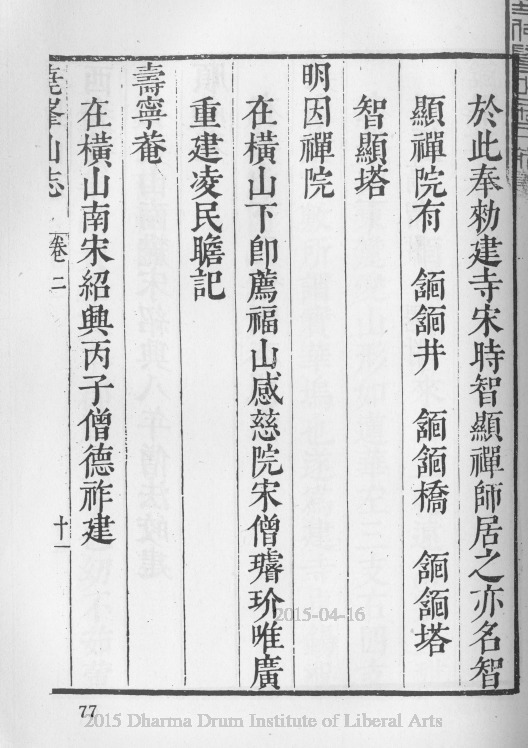 於此奉勑建寺宋時智顯禪師居之亦名智
顯禪院有 䶎䶎井 䶎䶎橋 䶎䶎塔
智顯塔
明因禪院
在橫山下卽薦福山感慈院宋僧璿玠唯廣
重建凌民瞻記
壽寧菴
在橫山南宋紹興丙子僧德祚建
堯峯山志 卷二 十一
77
2015-04-16
2015 Dharma Drum Institute of Liberal Arts